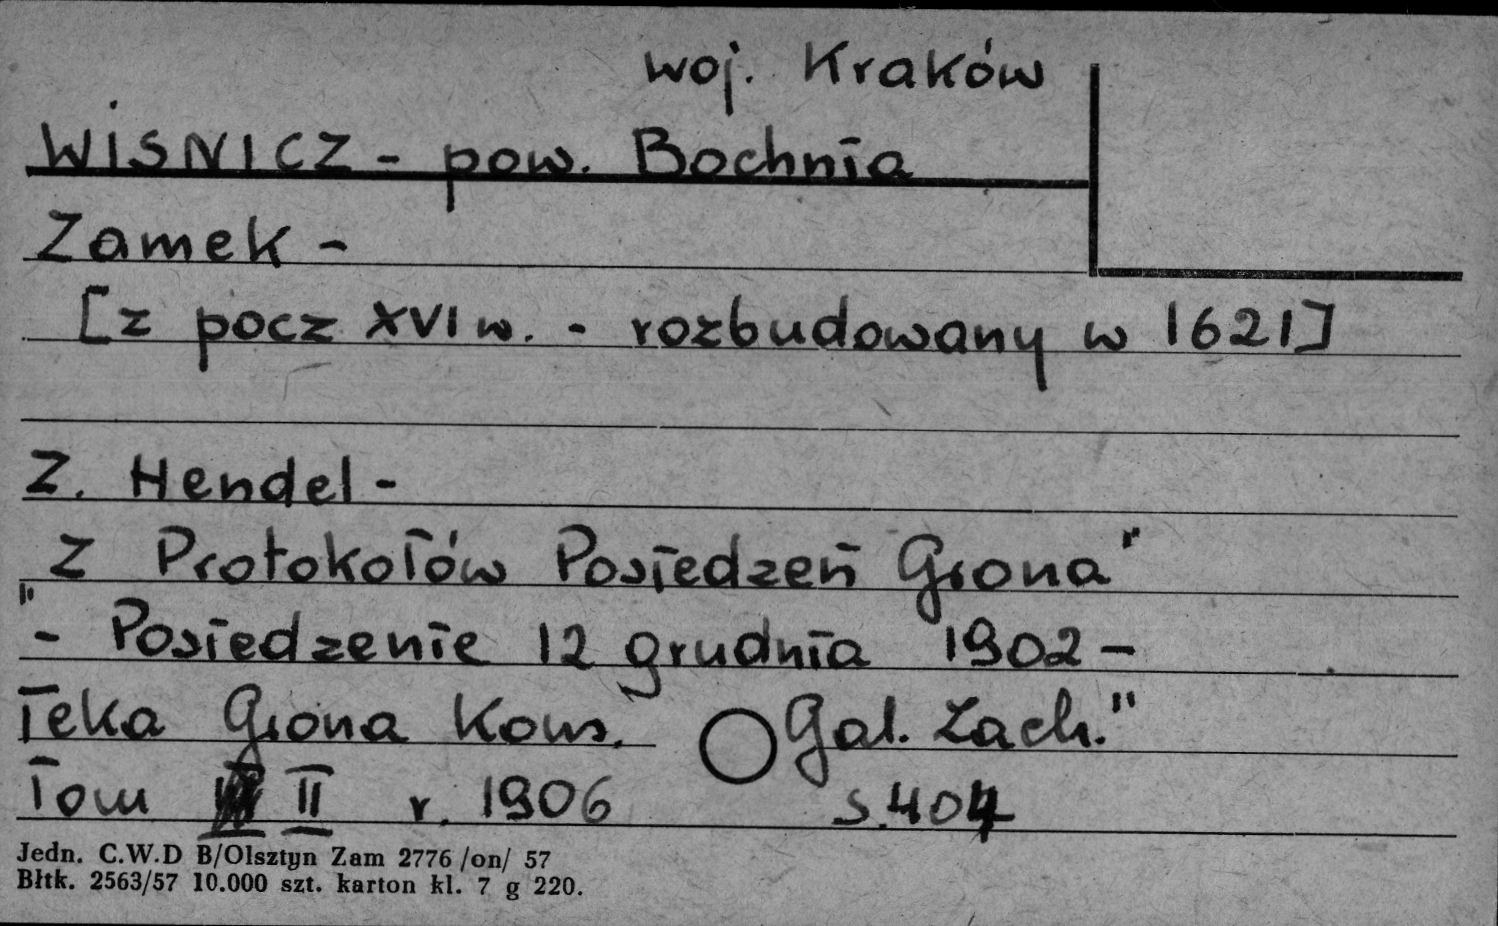 woj. Kraków
WIŚNICZ - pow. Bochnia
Zamek -
[z pocz XVI w. - rozbudowany w 1621]
Z. Hendel -
"Z Protokołów Posiedzeń Grona"
- Posiedzenie 12 grudnia 1902 -
"Teka Grona Kons. Gal. Zach."
Tom II r. 1906 s. 404
Jedn. C.W.D B/Olsztyn Zam 2776 /on/ 57
Błtk. 2563/57 10.000 szt. karton kl. 7 g 220.